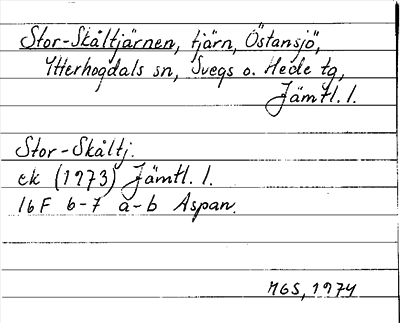 Stor-Skåltjärnen, tjärn, Östansjö,
Ytterhogdals sn, Svegs o. Hede tg,
Jämtl. l.
Stor-Skåltj.
ek (1973) Jämtl. l.
16F 6-7 a-b Aspan.
MGS, 1974